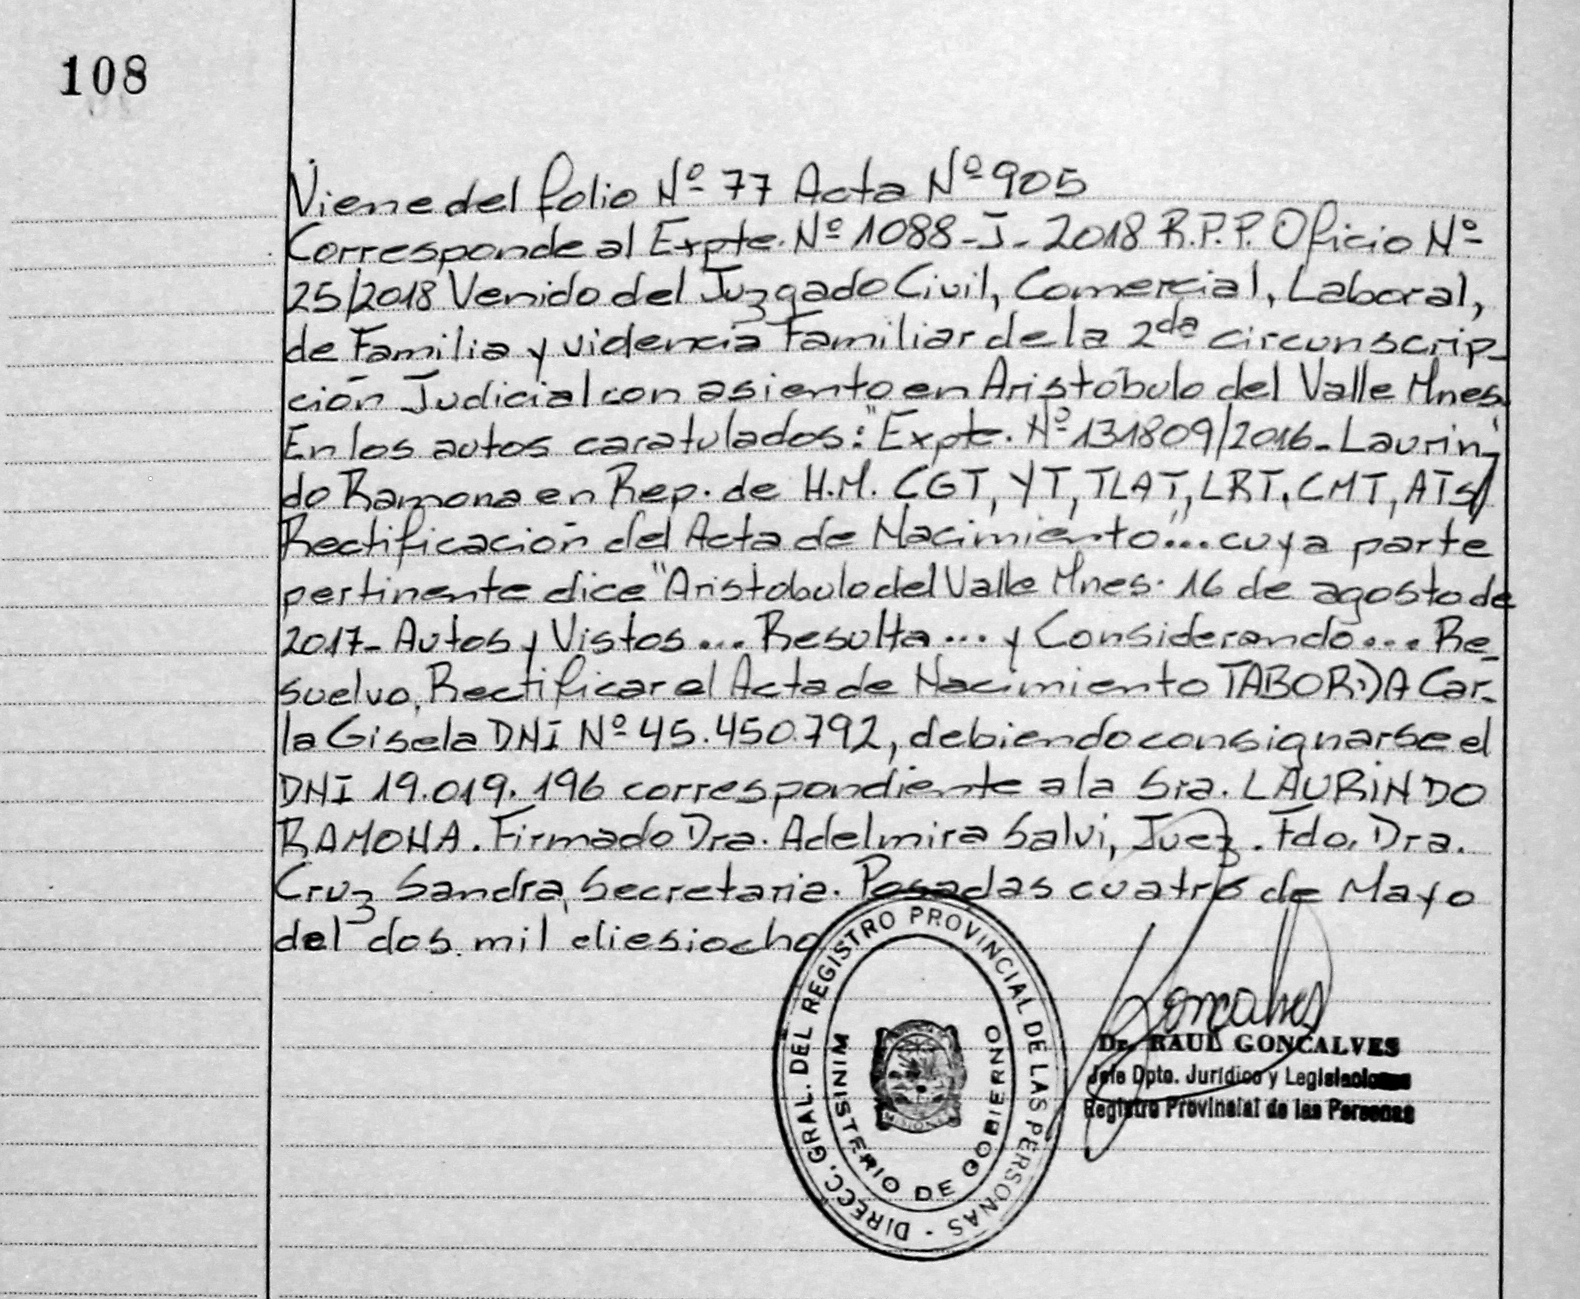 108
Viene del folio Nº 77 Acta Nº 905
Corresponde al Expte. Nº 1088-J- 2018 R.P.P. Oficio Nº
25/2018 Venido del Juzgado Civil, Comercial, Laboral,
de Familia y violencia Familiar de la 2da circunscrip-
ción Judicial con asiento en Aristóbulo del Valle Mnes.
En los autos caratulados: "Expte. Nº 131809/2016- Laurin-
do Ramona en Rep. de H.M. CGT, YT, TLAT, LRT, CMT, ATS/
Rectificación del Acta de Nacimiento"... cuya parte
pertinente dice "Aristobulo del Valle Mnes. 16 de agosto de
2017- Autos y Vistos... Resulta... y Considerando... Re-
suelvo, Rectificar el Acta de Nacimiento TABORDA Car-
la Gisela DNI Nº 45.450.792, debiendo consignarse el
DNI 19.019.196 correspondiente a la Sra. LAURINDO
RAMONA. Firmado Dra. Adelmira Salvi, Juez. Fdo. Dra.
Cruz Sandra, Secretaria. Posadas cuatro de Mayo
del dos mil diesiocho
DIRECC. GRAL. DEL REGISTRO PROVINCIAL DE LAS PERSONAS -
MINISTERIO DE GOBIERNO
MISIONES
Goncalves
Dr. RAUL GONCALVES
Jefe Dpto. Jurídico y Legislaciones
Registro Provincial de las Personas